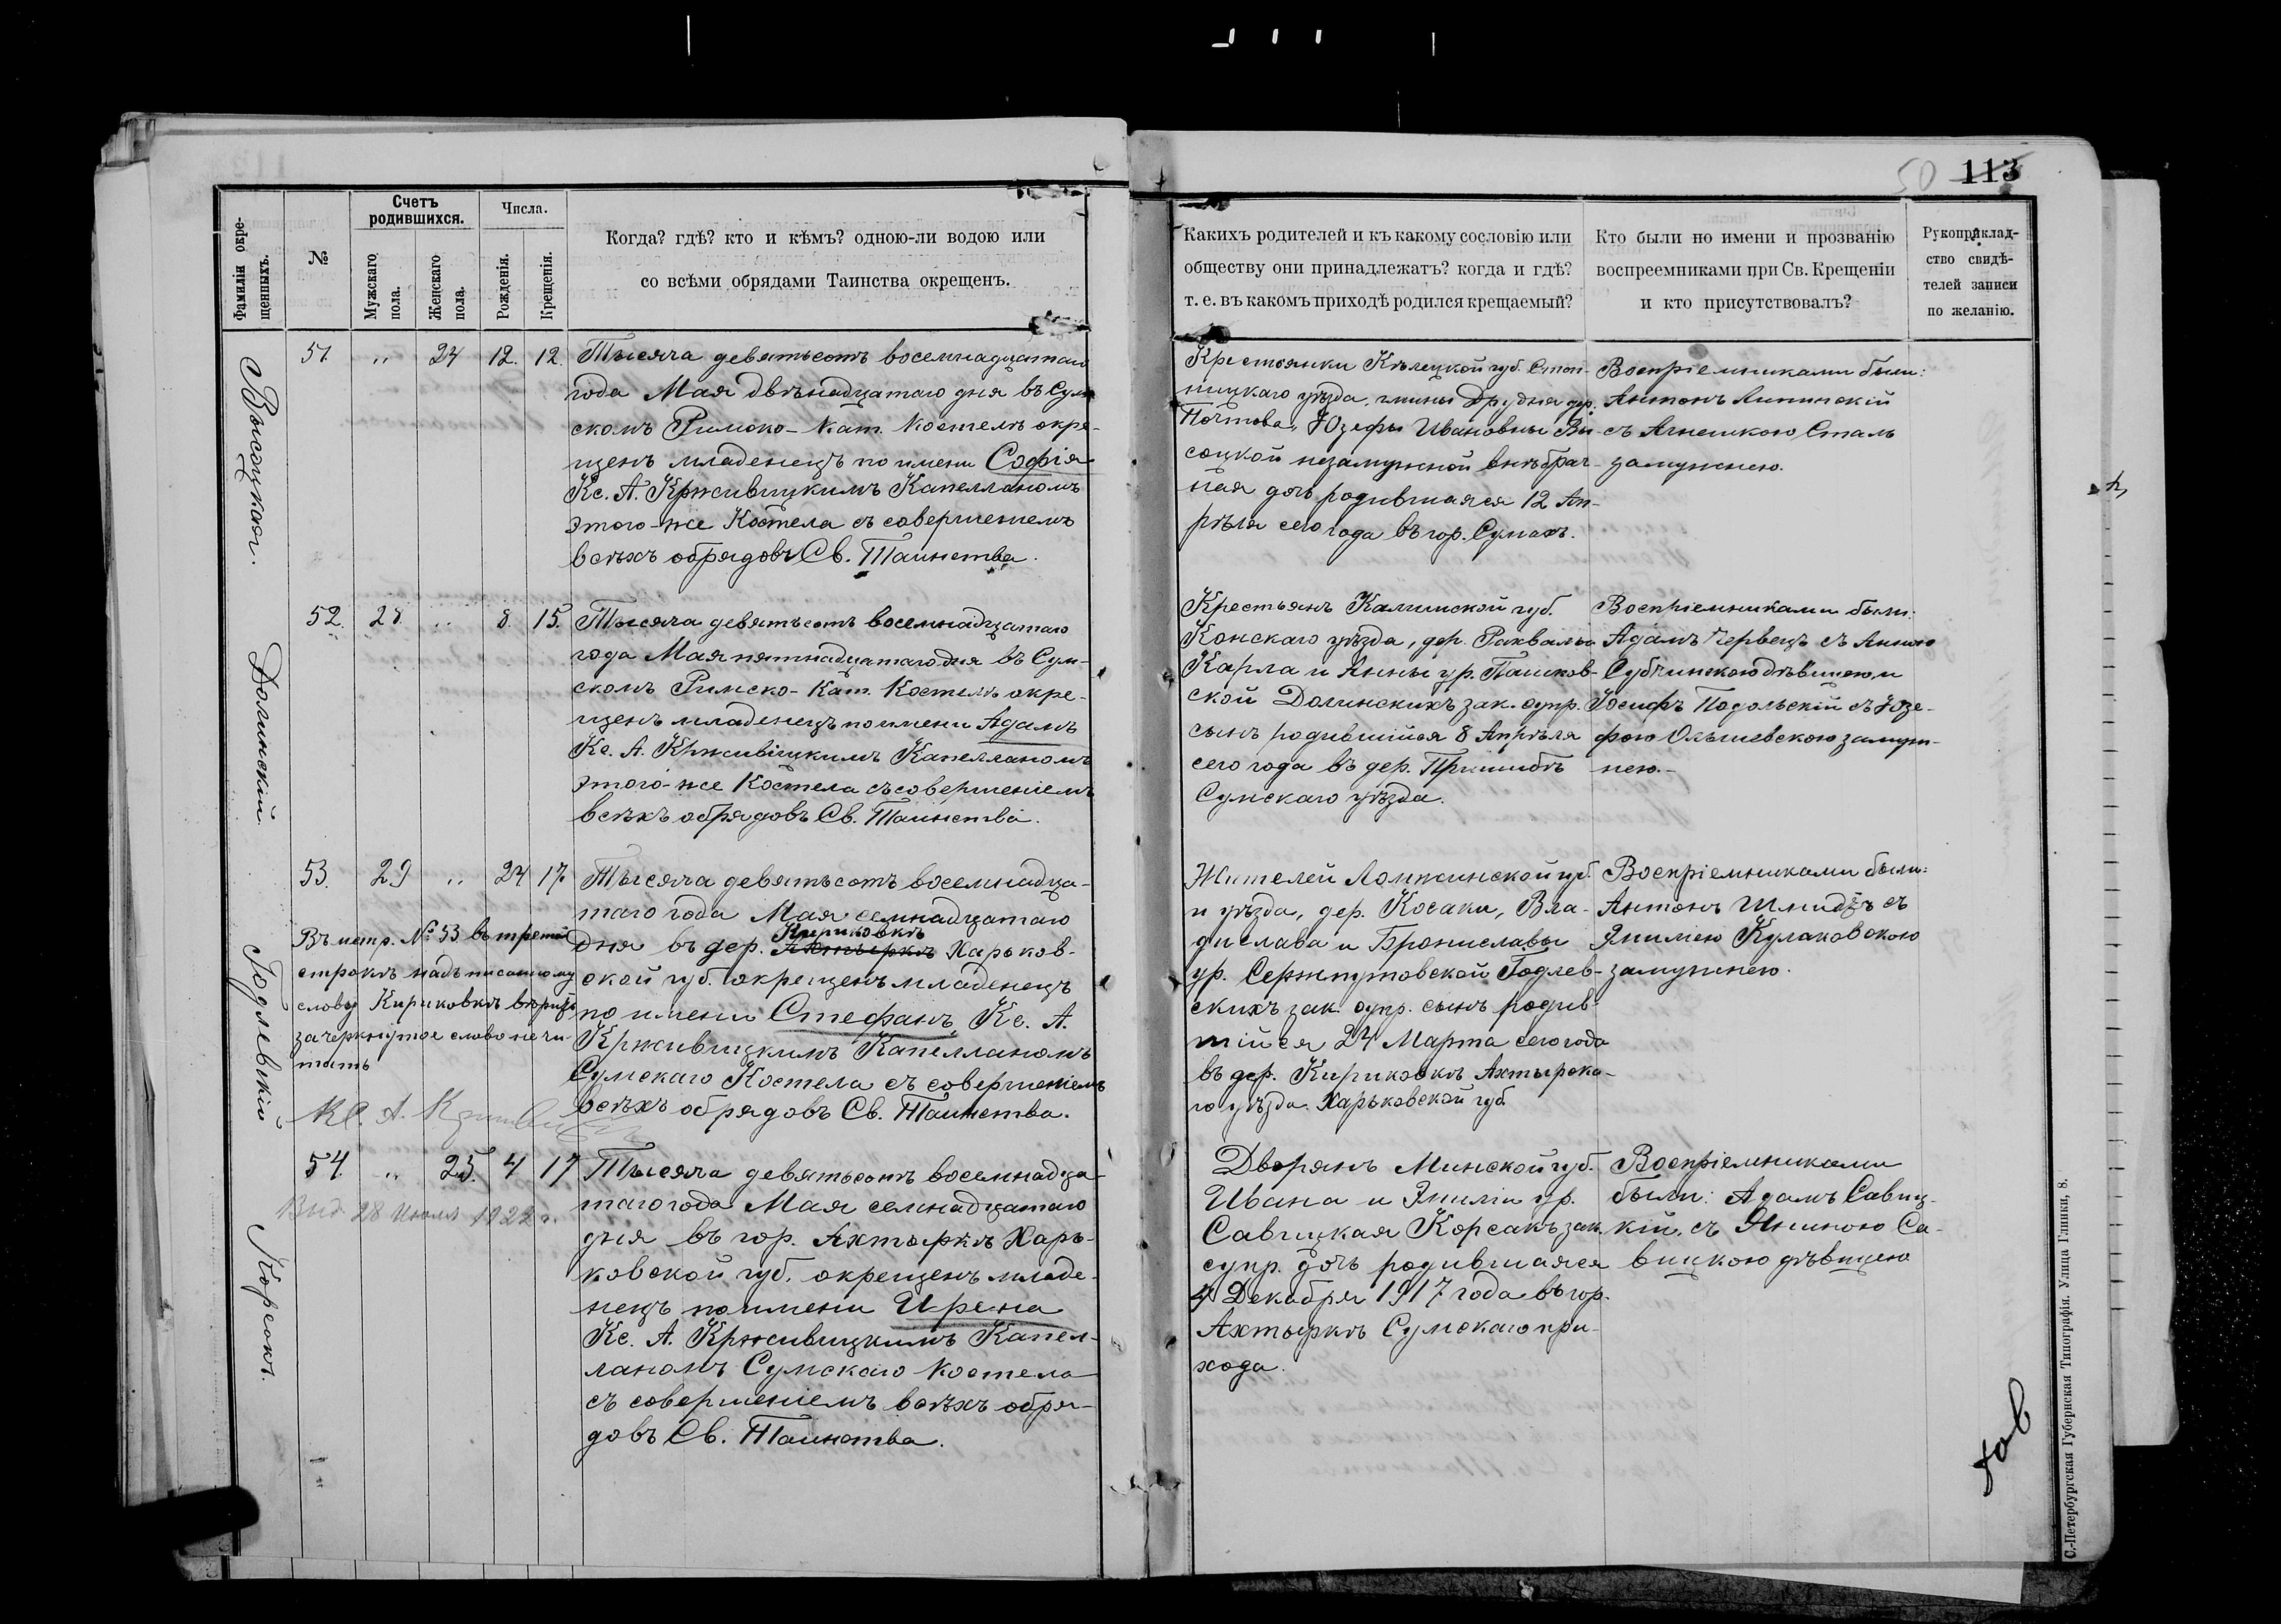 50 113
Фамиліи окре-
щенныхъ.
№
Счетъ
родившихся.
Мужскаго
пола.
Женскаго
пола.
Числа.
Рожденія.
Крещенія.
Когда? гдѣ? кто и кѣмъ? одною-ли водою или
со всѣми обрядами Таинства окрещенъ.
Какихъ родителей и къ какому сословію или
обществу они принадлежатъ? когда и гдѣ?
т. е. въ какомъ приходѣ родился крещаемый?
Кто были по имени и прозванію
воспреемниками при Св. Крещеніи
и кто присутствовалъ?
Рукоприклад-
ство свидѣ-
телей записи
по желанію.
Высоцкая.
51. „ 24 12. 12.
Тысяча девятьсотъ восемнадцатаго
года Мая двѣнадцатаго дня въ Сум-
скомъ Римско-Кат. Костелѣ окре-
щенъ младенецъ по имени Софія
Кс. А. Крживицкимъ Капелланомъ
этого-же Костела съ совершеніемъ
всѣхъ обрядовъ Св. Таинства.
Крестьянки Кѣлецкой губ. Стоп-
ницкаго уѣзда, гмины Друдня дер.
Почтова, Юзефы Ивановны Вы-
соцкой незамужной внѣбрач-
ная дочь родившаяся 12 Ап-
рѣля сего года въ гор. Сумахъ.
Воспріемниками были:
Антонъ Липинскій
съ Агнешкою Сталь
замужнею.
Долинскій
52. 28 „ 8. 15.
Тысяча девятьсотъ восемнадцатаго
года Мая пятнадцатаго дня въ Сум-
скомъ Римско-Кат. Костелѣ окре-
щенъ младенецъ по имени Адамъ
Кс. А. Крживицкимъ Капелланомъ
этого-же Костела съ совершеніемъ
всѣхъ обрядовъ Св. Таинства.
Крестьянъ Калишской губ.
Конскаго уѣзда, дер.
Карла и Анны ур. Пашков-
ской Долинскихъ зак. супр.
сынъ родившійся 8 Апрѣля
сего года въ дер. Пришибѣ
Сумскаго уѣзда.
Воспріемниками были:
Адамъ Червецъ съ Анною
Субчинскою дѣвицею и
Іосифъ Подольскій съ Юзе-
фою Ольшевскою замуж-
нею.
Годлевскій
53. 29 „ 24 17.
Тысяча девятьсотъ восемнадца-
таго года Мая семнадцатаго
Кириковкѣ
дня въ дер. Ахтыркѣ Харьков-
ской губ. окрещенъ младенецъ
по имени Стефанъ, Кс. А.
Крживицкимъ Капелланомъ
Сумскаго Костела съ совершеніемъ
всѣхъ обрядовъ Св. Таинства.
Въ метр. № 53 въ третей
строкѣ надъписанному
слову Кириковкѣ вѣрить
зачеркнутое слово не чи-
тать
Кс. А. Крживицкій
Жителей Ломжинской губ.
и уѣзда, дер. Косаки, Вла-
дислава и Брониславы
ур. Сержпутовской Годлев-
скихъ зак. супр. сынъ родив-
шійся 24 Марта сего года
въ дер. Кириковкѣ Ахтырска-
го уѣзда Харьковской губ.
Воспріемниками были:
Антонъ Шмидтъ съ
Эмиліею Кулаковскою
замужнею.
Корсакъ.
54. „ 25. 4 17
Выд. 28 Июля 1922 г.
Тысяча девятьсотъ восемнадца-
таго года Мая семнадцатаго
дня въ гор. Ахтыркѣ Харь-
ковской губ. окрещенъ младе-
нецъ по имени Ирена
Кс. А. Крживицкимъ Капел-
ланомъ Сумскаго Костела
съ совершеніемъ всѣхъ обря-
довъ Св. Таинства.
Дворянъ Минской губ.
Ивана и Эмиліи ур.
Савицкая Корсакъ зак.
супр. дочь родившаяся
4 Декабря 1917 года въ гор.
Ахтыркѣ Сумскаго при-
хода.
Воспріемниками
были: Адамъ Савиц-
кій, съ Яниною Са-
вицкою дѣвицею
С.-Петербургская Губернская Типографія. Улица Глинки, 8.